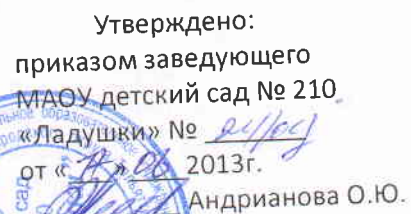 Утверждено:
приказом заведующего
МАОУ детский сад № 210
«Ладушки» №
от « » 06 2013г.
Андрианова О.Ю.